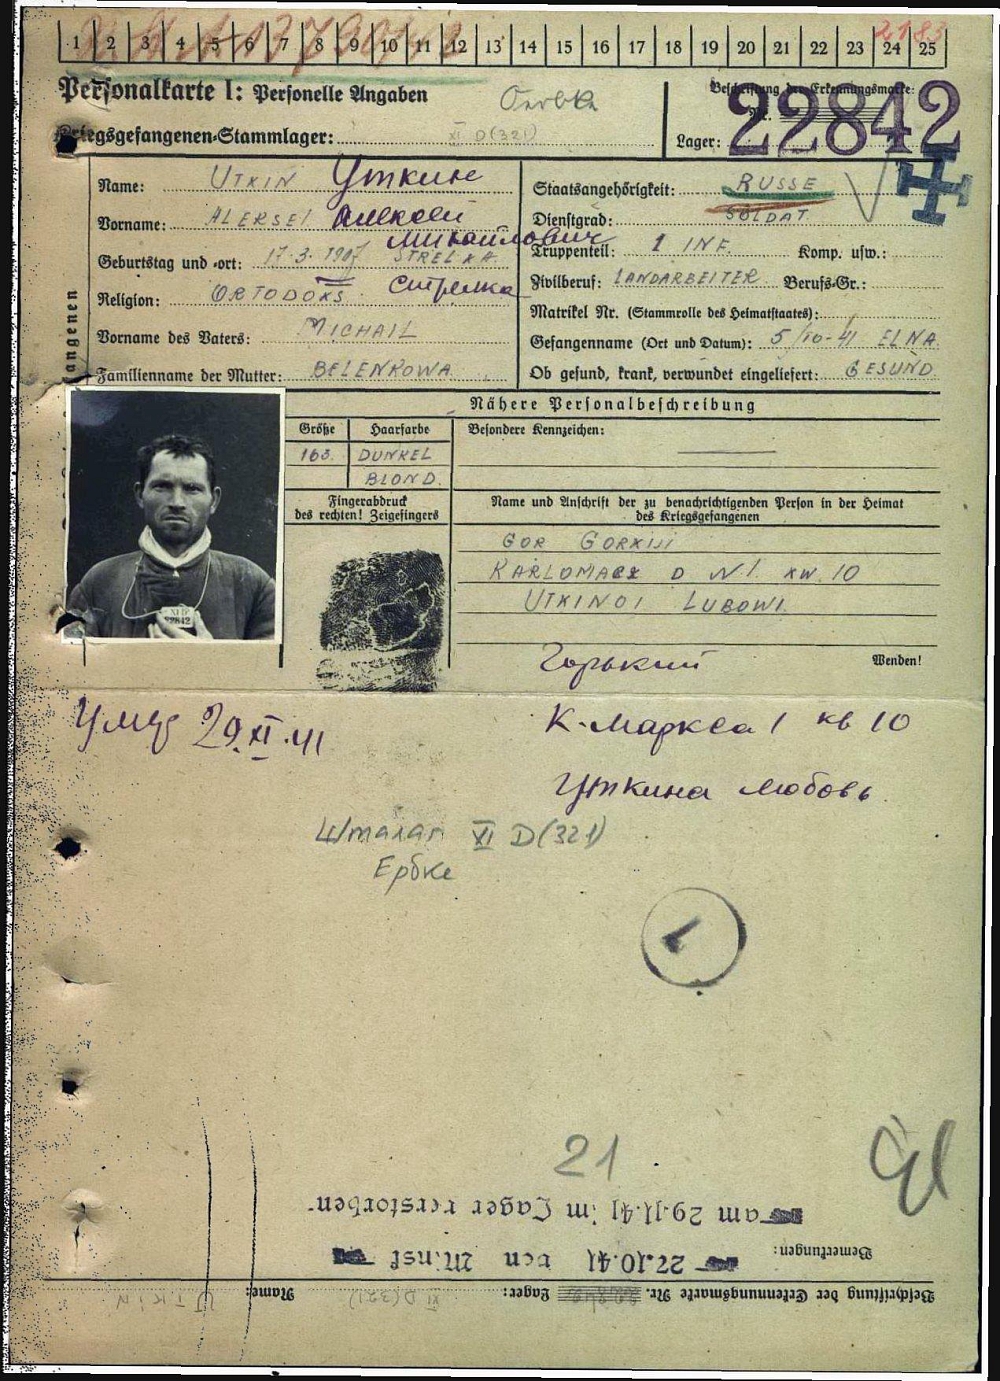 1 2 3 4 5 6 7 8 9 10 11 12 13 14 15 16 17 18 19 20 21 22 23 24 25
2183
Personalkarte I: Personelle Angaben
Oerbke
Beschriftung der Erkennungsmarke:
22842
Kriegsgefangenen-Stammlager: XI D (321)
Lager:
Name: UTKIN Уткин
Vorname: ALEKSEI Алексей
Михайлович
Geburtstag und -ort: 17.3.1907 STRELKA
Стрелка
Religion: ORTODOKS
Vorname des Vaters: MICHAIL
Familienname der Mutter: BELENKOWA
Staatsangehörigkeit: RUSSE
Dienstgrad: SOLDAT
Truppenteil: 1 INF. Komp. usw.:
Zivilberuf: LANDARBEITER Berufs-Gr.:
Matrikel Nr. (Stammrolle des Heimatstaates):
Gefangenname (Ort und Datum): 5/10-41 ELNA
Ob gesund, krank, verwundet eingeliefert: GESUND
angenen
Nähere Personalbeschreibung
Größe Haarfarbe Besondere Kennzeichen:
163. DUNKEL
BLOND.
Fingerabdruck
des rechten! Zeigefingers
Name und Anschrift der zu benachrichtigenden Person in der Heimat
des Kriegsgefangenen
GOR GORKIJI
KARLOMARX D N1 KW 10
UTKINOI LUBOWI
XI D
22842
Горький
Wenden!
К. Маркса 1 кв 10
Уткина Любовь
29.XI.41
Шталаг XI D (321)
Ербке
1
21
am 29.11.41 im Lager verstorben
Bemerkungen:
27.10.41 von Minsk
Beschriftung der Erkennungsmarke Nr. Lager: XI D (321) Name: UTKIN